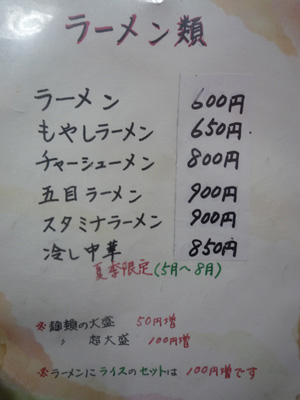 ラーメン類
ラーメン 600円
もやしラーメン 650円
チャーシューメン 800円
五目ラーメン 900円
スタミナラーメン 900円
冷し中華 850円
夏季限定(5月〜8月)
※麺類の大盛 50円増
〃 超大盛 100円増
※ラーメンにライスのセットは 100円増です